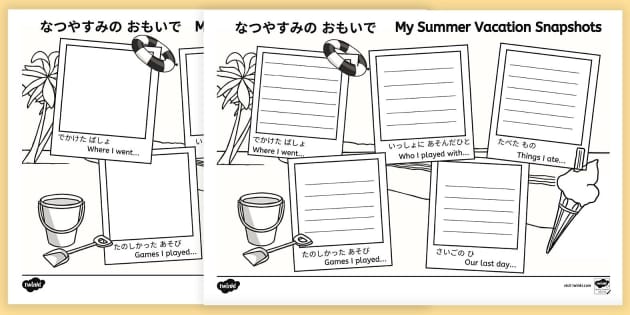 なつやすみの おもいで M
でかけた ばしょ
Where I went...
たのしかった あそび
Games I played...
twinkl
なつやすみの おもいで My Summer Vacation Snapshots
でかけた ばしょ
Where I went...
いっしょに あそんだひと
Who I played with...
たべた もの
Things I ate...
たのしかった あそび
Games I played...
さいごの ひ
Our last day...
twinkl
visit twinkl.com